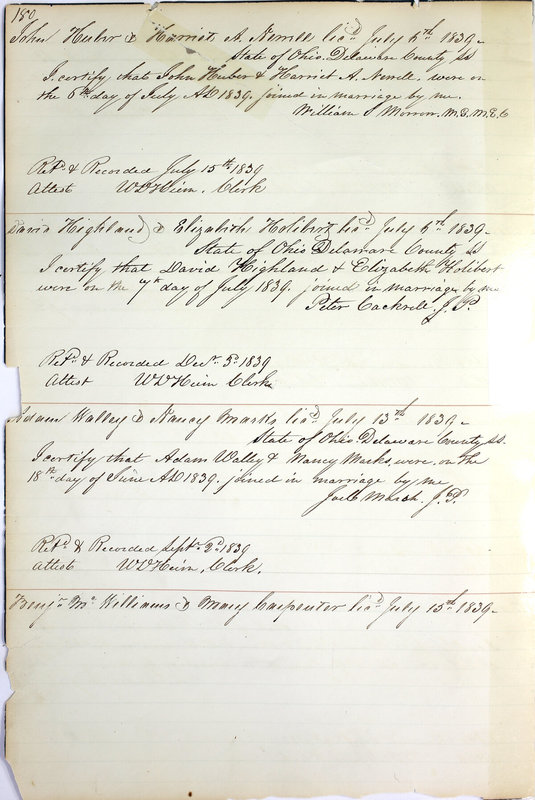 180
John Huber & Harriet A. Nerrell lic'd July 6th 1839-
State of Ohio Delaware County ss
I certify that John Huber & Harriet A. Nerrell, were on
the 6th day of July AD 1839. joined in marriage by me.
William S Morrow. M.G. M.E.C
Ret'd & Recorded July 15th 1839
Attest W D Heim, Clerk
David Highland & Elizabeth Holibert lic'd July 6th 1839-
State of Ohio Delaware County ss
I certify that David Highland & Elizabeth Holibert
were on the 7th day of July 1839. joined in marriage by me
Peter Cackrell. J. P.
Ret'd & Recorded Decr 5d 1839
Attest W D Heim Clerk
Adam Walley & Nancy Marks lic'd July 13th 1839-
State of Ohio Delaware County ss.
I certify that Adam Walley & Nancy Marks, were, on the
18th day of June AD 1839. joined in marriage by me
Joel March. J. P.
Ret'd & Recorded Septr 2d 1839
Attest W D Heim, Clerk.
Benjn McWilliams & Mary Carpenter lic'd July 15th 1839-